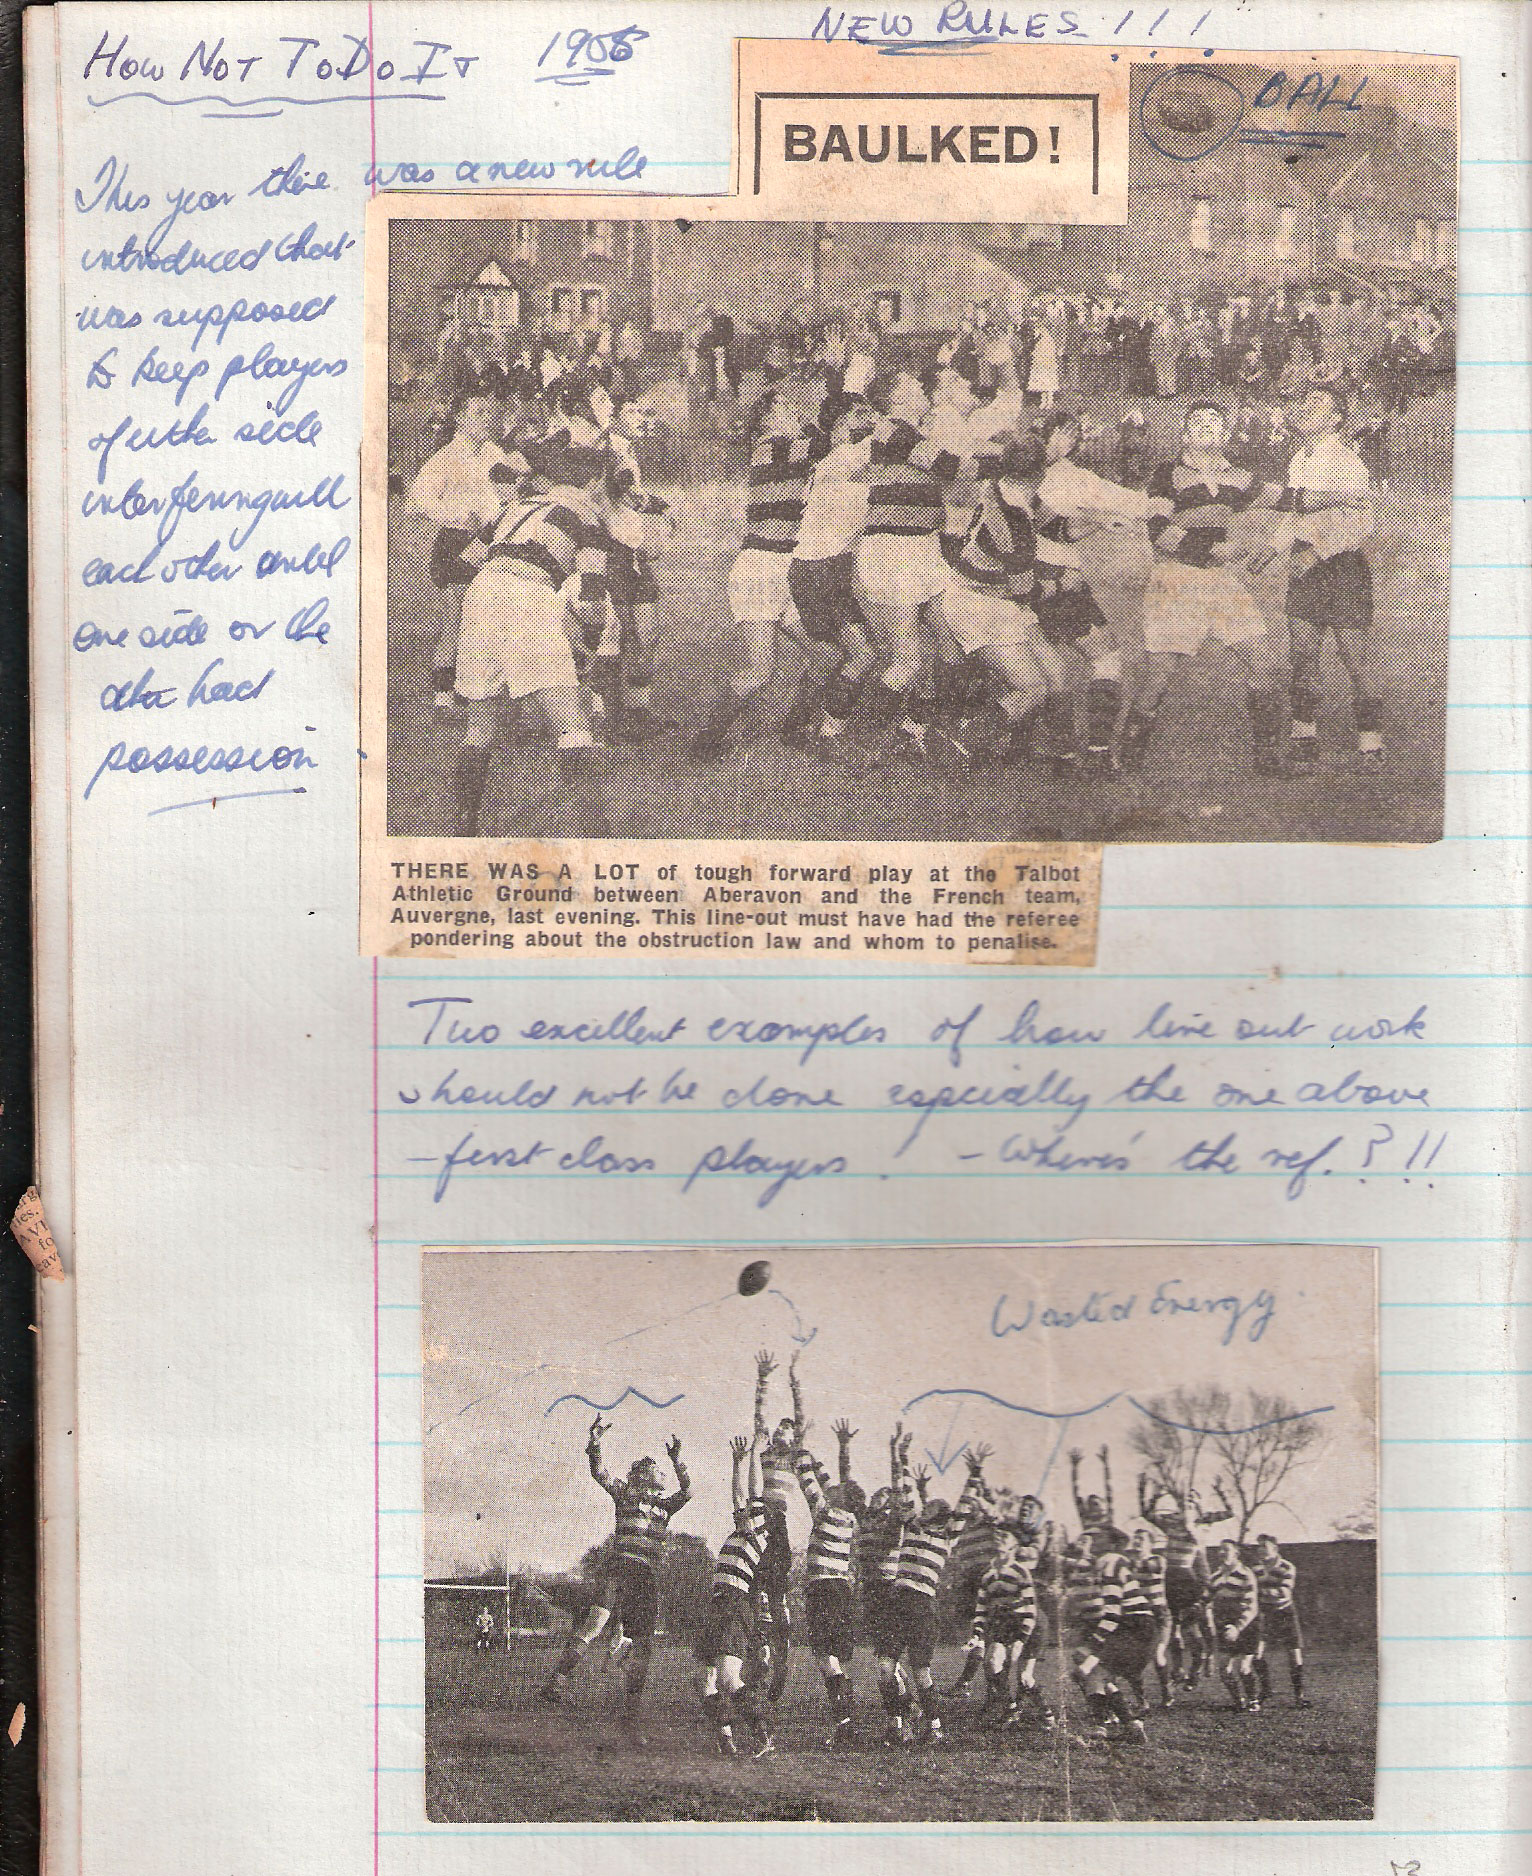 NEW RULES!!!
HOW NOT TO DO IT 1956
BALL
BAULKED!
This year there was a new rule
introduced that
was supposed
to keep players
of either side
interfering with
each other until
one side or the
other had
possession
THERE WAS A LOT of tough forward play at the Talbot
Athletic Ground between Aberavon and the French team,
Auvergne, last evening. This line-out must have had the referee
pondering about the obstruction law and whom to penalise.
Two excellent examples of how line out work
should not be done especially the one above
- first class players! - Where's the ref.?!!
Wasted Energy